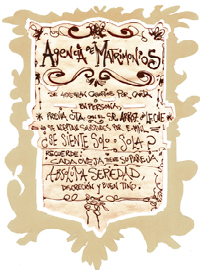 AGENCIA DE MATRIMONIOS
SE ACEPTAN CONSULTAS POR CARTA
O
EN PERSONA,
PREVIA CITA CON EL SR.
SE REMITEN SOLICITUDES POR E-MAIL
¿SE SIENTE SOLO o SOLA?
RECUERDE:
CADA OVEJA TIENE SU PAREJA
ABSOLUTA SERIEDAD,
DISCRECIÓN Y BUEN TINO.